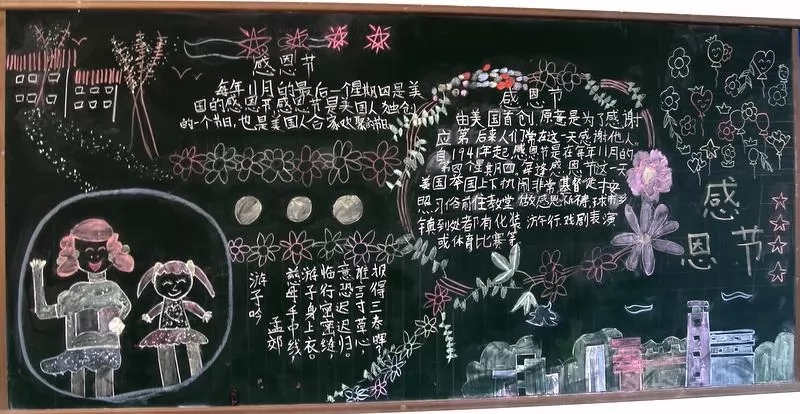 感恩节
每年11月的最后一个星期四是美
国的感恩节感恩节是美国人独创
的一个节日,也是美国人合家欢聚的节
感恩节
由美国首创,原意是为了感谢
后来人们常在这一天感谢他人。
自1941年起,感恩节是在每年11月的
第四个星期四,每逢感恩节这一天
美国举国上下热闹非常,基督徒
照习俗前往教堂做感恩祈祷,城市乡
镇到处都有化装游行、戏剧表演
或体育比赛等
感
恩节
游子吟
孟郊
慈母手中线
游子身上衣。
临行密密缝,
意恐迟迟归。
谁言寸草心,
报得三春晖